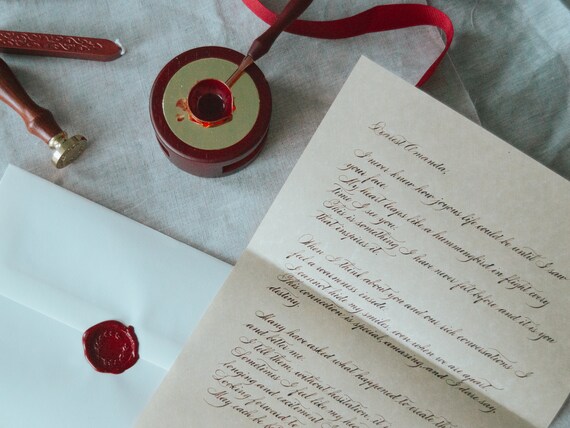 Dearest Amanda,
I never knew how joyous life could be until I saw
your face.
My heart dances like a hummingbird in flight every
time I see you.
This is something I have never felt before and it is you
that inspires it.
When I think about you and our rich conversations I
feel a warmness inside.
I cannot hide my smiles even when we are apart.
This connection is special, amazing, and I dare say,
destiny.
Many have asked what happened to create this
and better me.
I tell them, without hesitation, it
Sometimes I feel like my hear
longing and excitement
Looking forward to
May can be